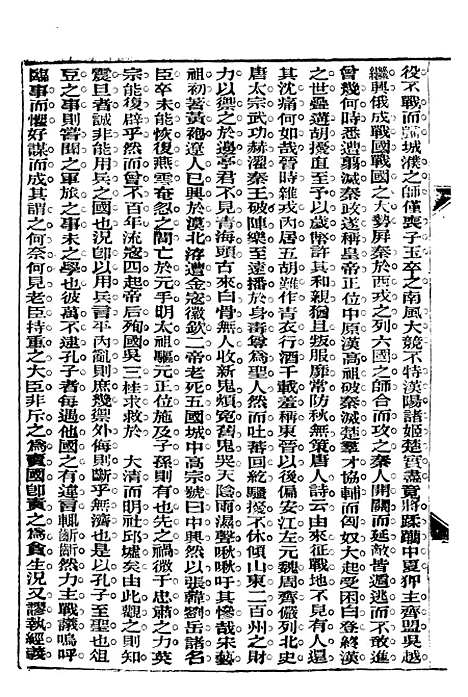 役不戰而﻿城濮之師僅喪子玉卒之南風大競不特漢陽諸姬楚實盡竟將蹂躪中夏狎主齊盟吳越
繼興俄成戰國戰國之大勢屏秦於西戎之列六國之師合而攻之秦人開關而延敵皆遁逃而不敢進
曾幾何時悉遭軀滅秦政遂稱皇帝正位中原漢高祖破秦滅楚羣才協輔而匈奴大起受困白登終漢
之世疊遊胡擾直至予以歲幣許其和親猶且叛服靡常防秋無策唐人詩云由來征戰地不見有人還
其沈痛何如哉晉時雜戎內居五胡難作青衣行酒千載羞稱東晉以後偏安江左元魏周齊儼列北史
唐太宗武功赫濯秦王破陣樂至遠播於身毒尊為聖人然而吐蕃回紇騷擾不休傾山東二百州之財
力以禦之於邊亭君不見青海頭古來白骨無人收新鬼煩冤舊鬼哭天陰雨濕聲啾啾吁其慘哉宋藝
祖初著黃袍遼人已興於漠北洊遭金寇徽欽二帝老死五國城中高宗號曰中興然以張韓劉岳諸名
臣卒未能恢復燕雲奄忽之閒亡於元手明太祖驅元正位施及子孫則有也先之禍微于忠肅之力英
宗能復辟乎然而曾不百年流寇四起帝后殉國吳三桂求救於　大清而明社邱墟矣由此觀之則知
震旦者誠非能用兵之國也況卽以用兵言平內亂則庶幾禦外侮則斷乎無濟也是以孔子至聖也俎
豆之事則嘗聞之軍旅之事未之學也彼萬不逮孔子者每過他國之有違言輒斷斷然力主戰議嗚呼
臨事而懼好謀而成其謂之何奈何見老臣持重之大臣非斥之為賣國卽責之為貪生況又謬執經義